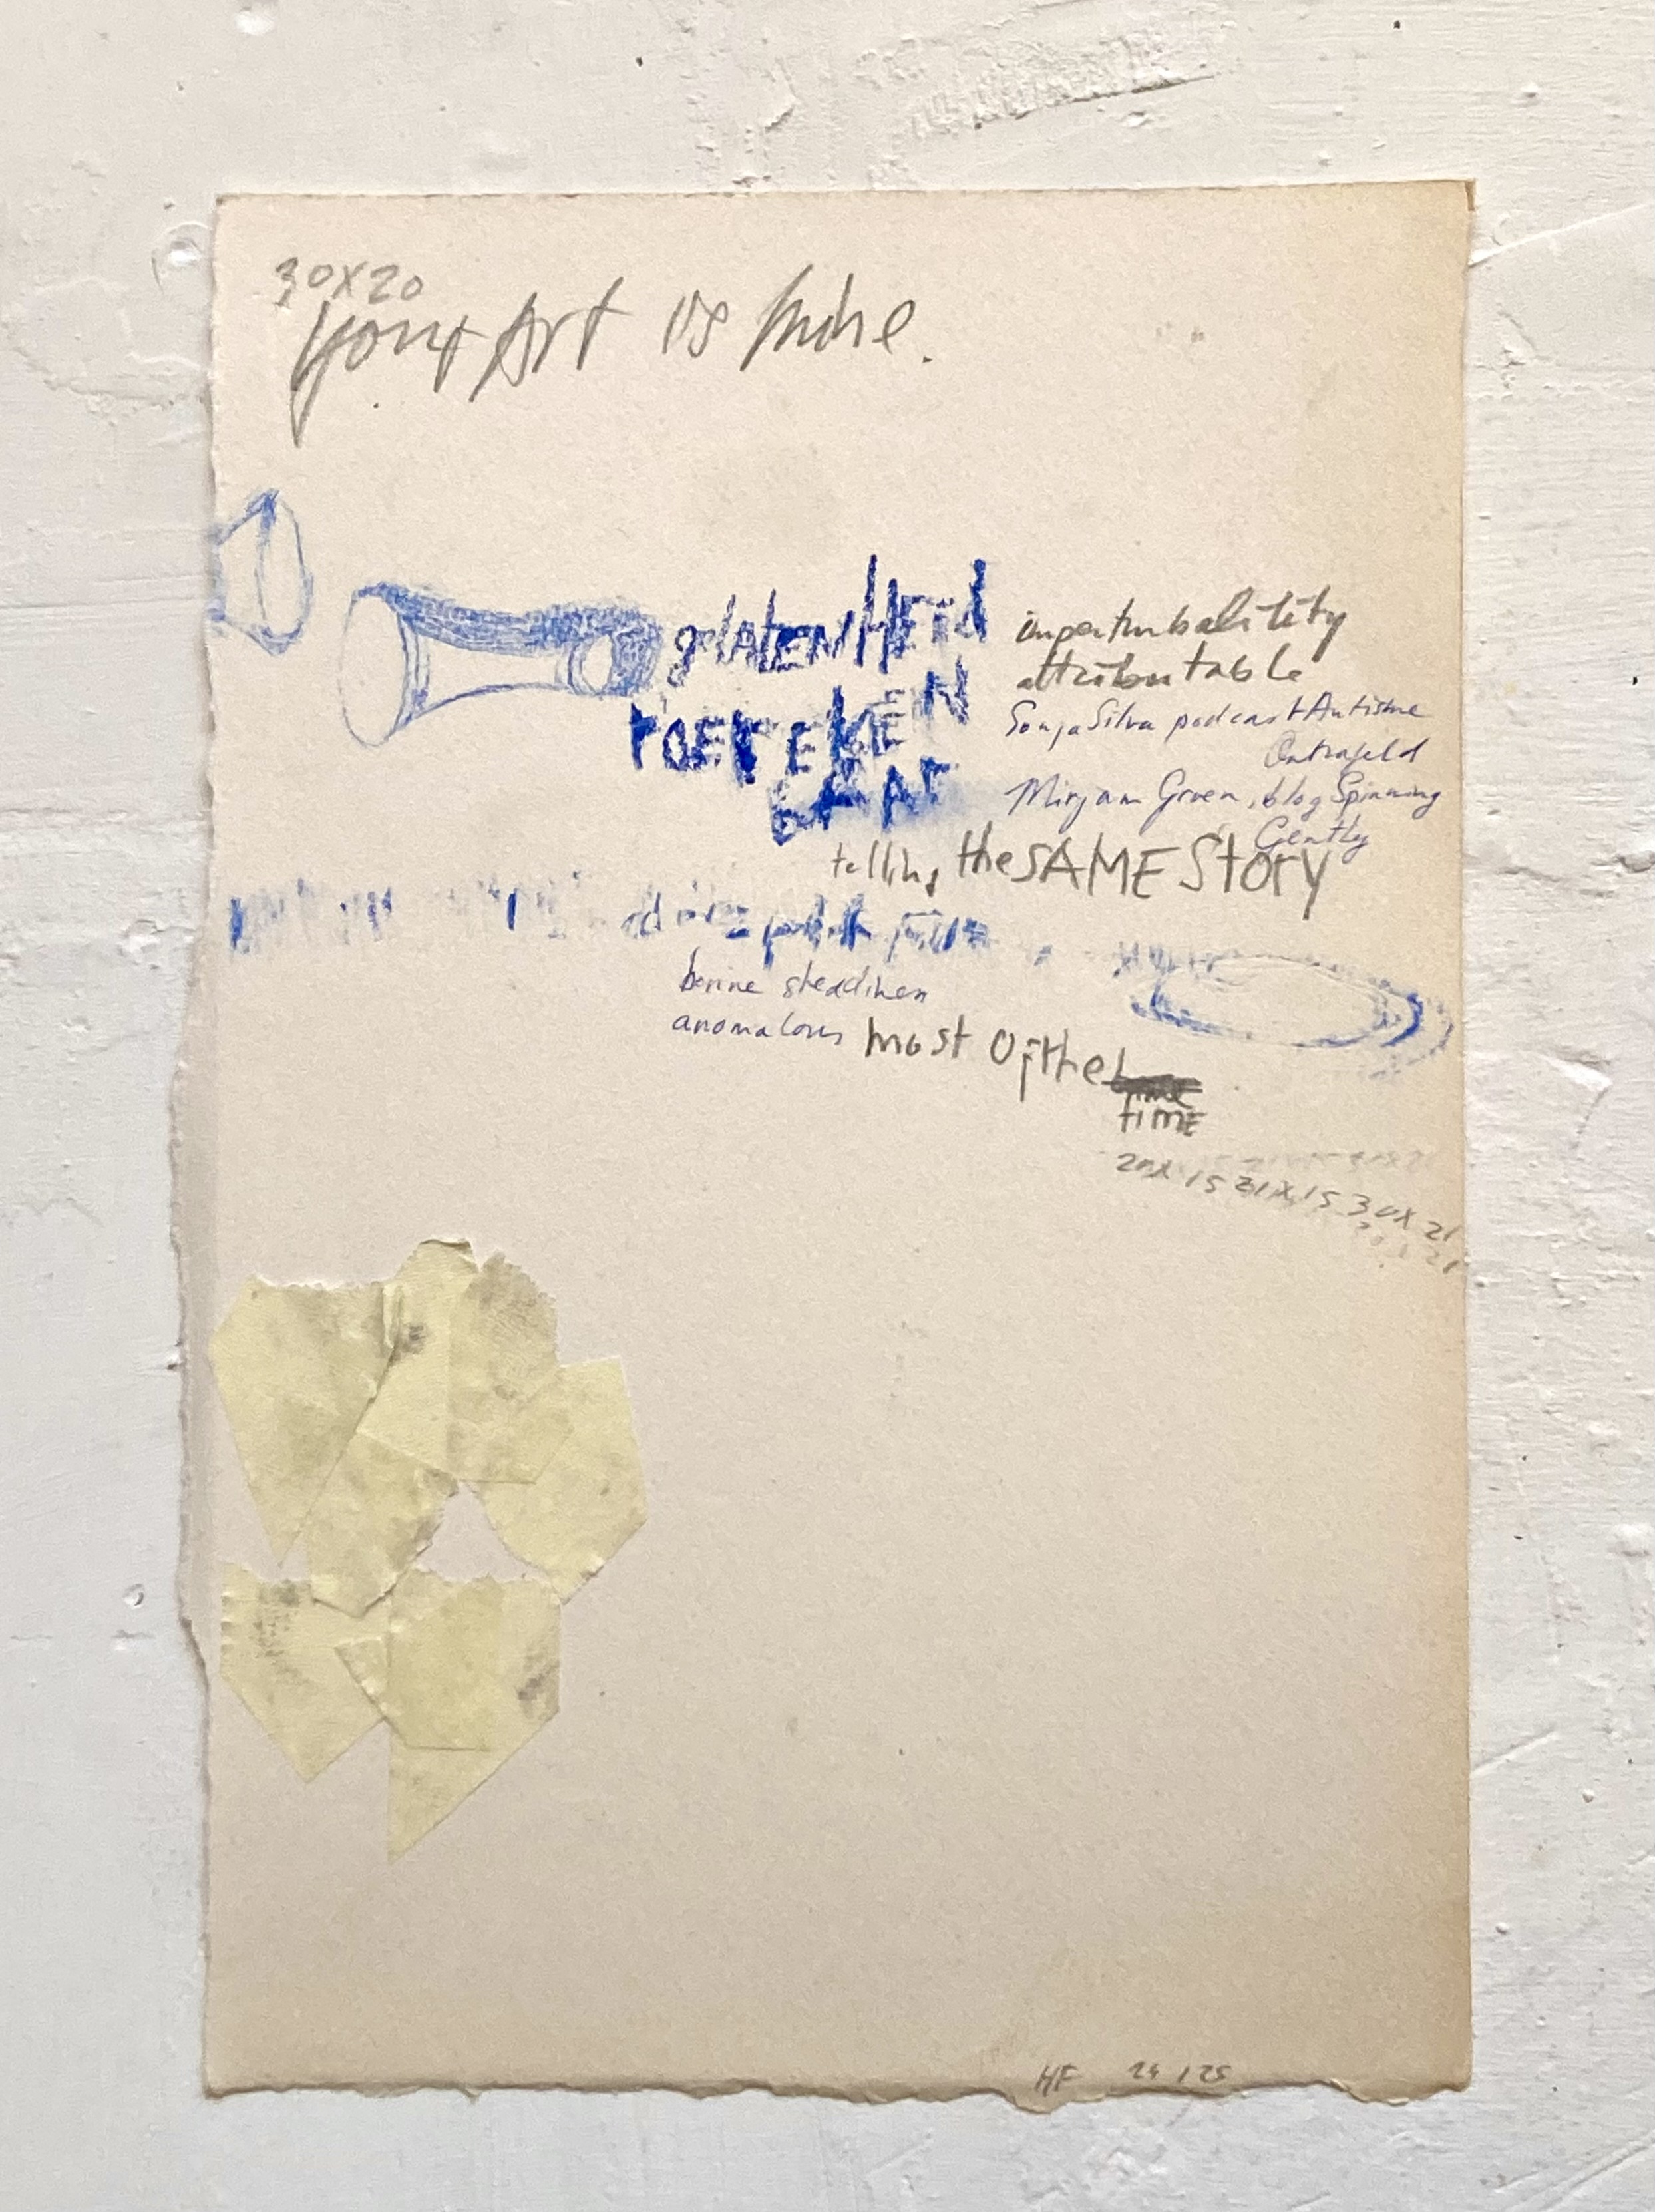 30x20
your Art is mine.
gelatenHEid
toerekenbaar
imperturbability
attributable
Sonja Silva podcast Autisme
Ontrafeld
Mirjam Groen, blog Spinning
Gently
telling the SAME Story
anomalous most of the
time
20x15 21x15 30x21
HF 24/25